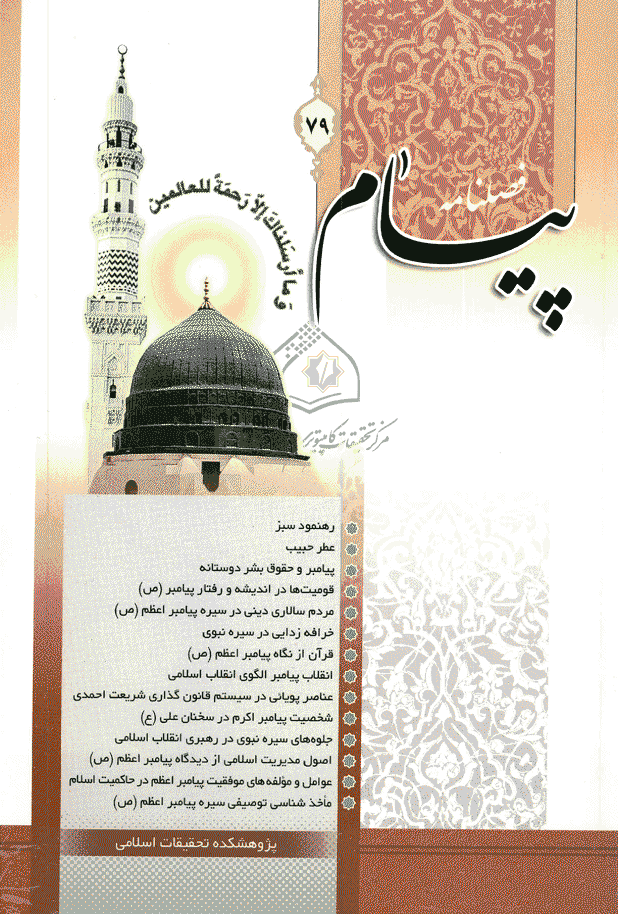 ۷۹
فصلنامه
پیام
وَ ما أرسَلناكَ إلّا رَحمَةً للعالمین
مرکز تحقیقات کامپیوتری
رهنمود سبز
عطر حبیب
پیامبر و حقوق بشر دوستانه
قومیت‌ها در اندیشه و رفتار پیامبر (ص)
مردم سالاری دینی در سیره پیامبر اعظم (ص)
خرافه زدایی در سیره نبوی
قرآن از نگاه پیامبر اعظم (ص)
انقلاب پیامبر الگوی انقلاب اسلامی
عناصر پویائی در سیستم قانون گذاری شریعت احمدی
شخصیت پیامبر اکرم در سخنان علی (ع)
جلوه‌های سیره نبوی در رهبری انقلاب اسلامی
اصول مدیریت اسلامی از دیدگاه پیامبر اعظم (ص)
عوامل و مؤلفه های موفقیت پیامبر اعظم در حاکمیت اسلام
مأخذ شناسی توصیفی سیره پیامبر اعظم (ص)
پژوهشکده تحقیقات اسلامی